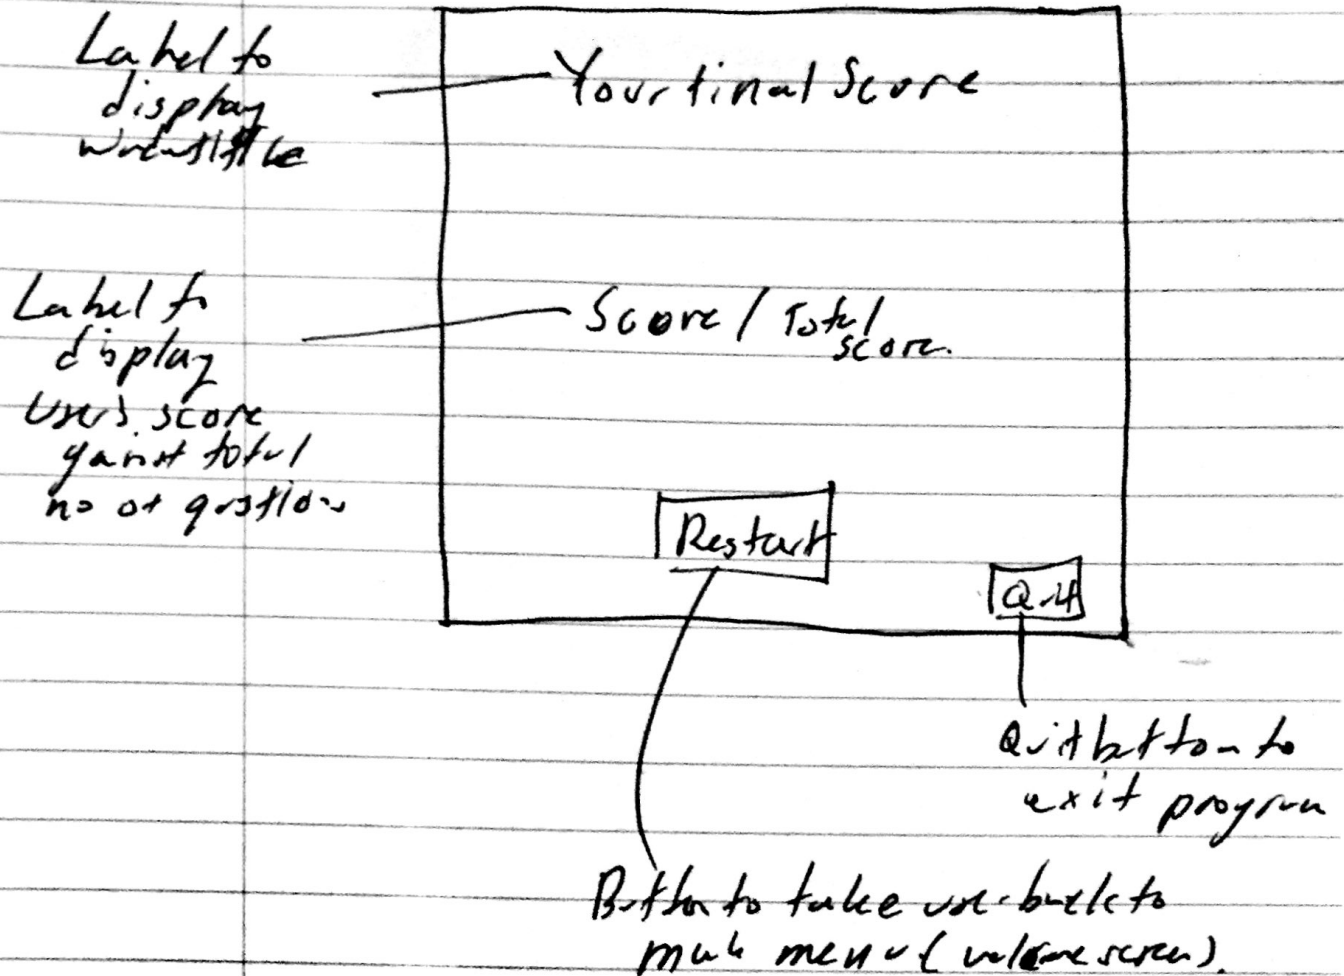 Label to
display
Your final Score
Label to
display
user's score
against total
no of questions
Score / Total
score.
Restart
Quit
Quit button to
exit program
Button to take user back to
main menu (welcome screen).